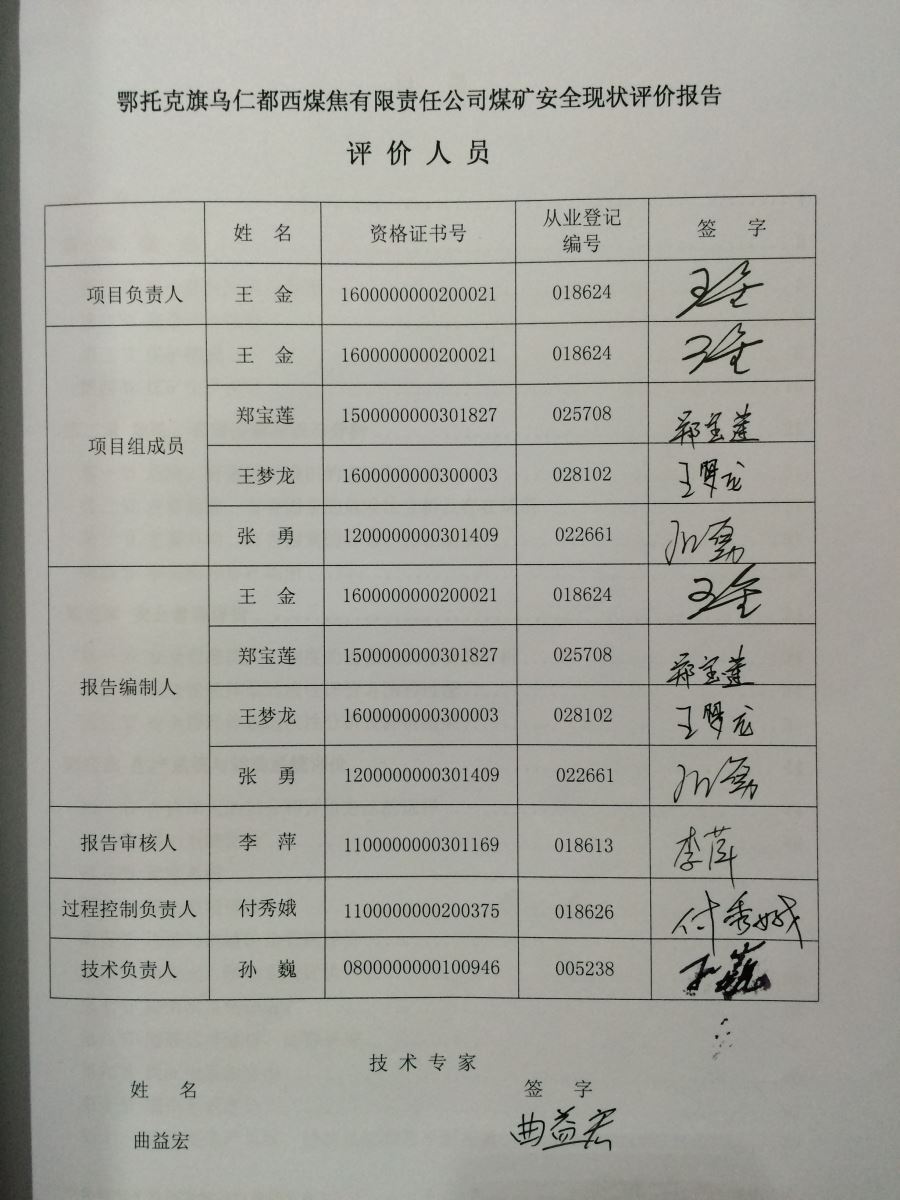 鄂托克旗乌仁都西煤焦有限责任公司煤矿安全现状评价报告
评价人员
姓 名 资格证书号 从业登记编号 签 字
项目负责人 王 金 1600000000200021 018624 王金
项目组成员 王 金 1600000000200021 018624 王金
郑宝莲 1500000000301827 025708 郑宝莲
王梦龙 1600000000300003 028102 王梦龙
张 勇 1200000000301409 022661 张勇
报告编制人 王 金 1600000000200021 018624 王金
郑宝莲 1500000000301827 025708 郑宝莲
王梦龙 1600000000300003 028102 王梦龙
张 勇 1200000000301409 022661 张勇
报告审核人 李 萍 1100000000301169 018613 李萍
过程控制负责人 付秀娥 1100000000200375 018626 付秀娥
技术负责人 孙 巍 0800000000100946 005238 孙巍
技术专家
姓 名 签 字
曲益宏 曲益宏